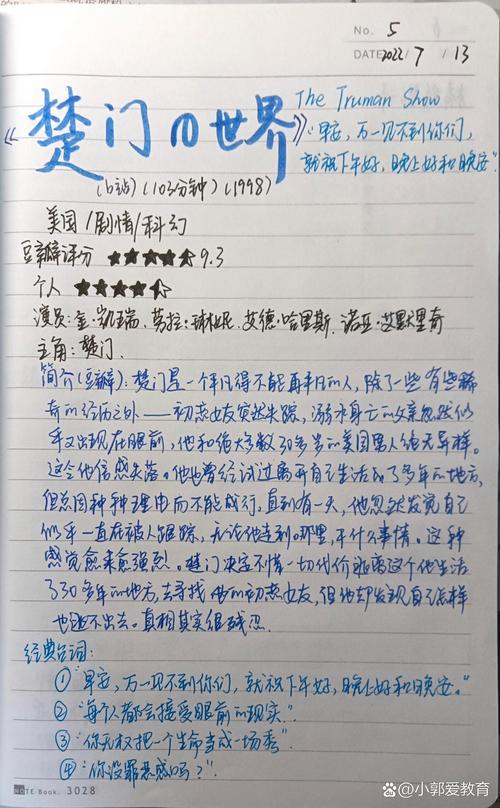 No. 5
DATE 2022 / 7 / 13
《楚门的世界》
The Truman Show
"早安,万一见不到你们,
就祝下午好,晚上好和晚安"
(b站)(103分钟)(1998)
美国/剧情/科幻
豆瓣评分 ★★★★⯨ 9.3
个人 ★★★★⯨
演员:金·凯瑞、劳拉·琳妮、艾德·哈里斯、诺亚·艾默里奇
主角:楚门.
简介(豆瓣):楚门是一个平凡得不能再平凡的人,除了一些有些稀
奇的经历之外——初恋女友突然失踪,溺水身亡的父亲忽然似
乎又出现在眼前,他和绝大多数30多岁的美国男人绝无异样。
这令他倍感失落。他也曾经试过离开自己生活了多年的地方,
但总因种种理由而不能成行。直到有一天,他忽然发觉自己
似乎一直在被人跟踪,无论他走到哪里,干什么事情。这种
感觉愈来愈强烈。楚门决定不惜一切代价逃离这个他生活
了30多年的地方,去寻找他的初恋女友,但他却发现自己怎样
也逃不出去。真相其实很残忍.
经典台词:
①"早安,万一见不到你们,就祝下午好,晚上好和晚安。"
②"每个人都会接受眼前的现实"
③"你无权把一个生命当成一场秀"
④"你没罪恶感吗?"
NOTE Book. 3028
小郭爱教育